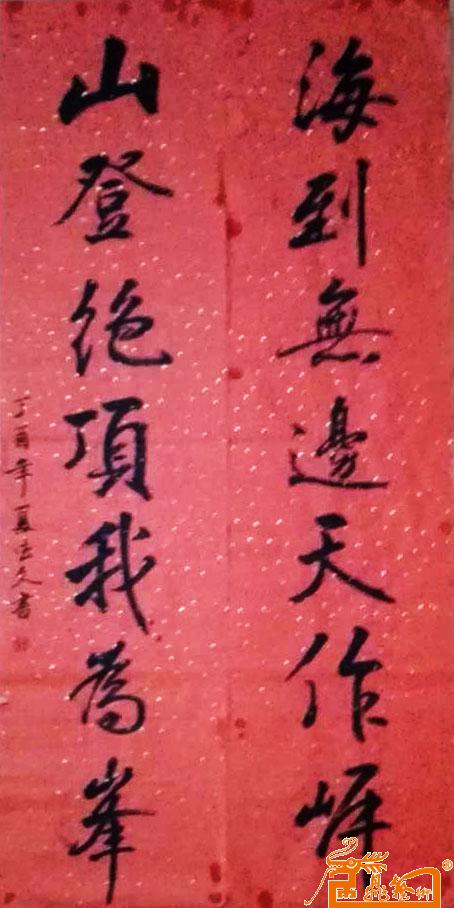 海到無邊天作岸
山登絕頂我為峯
丁酉年夏文書